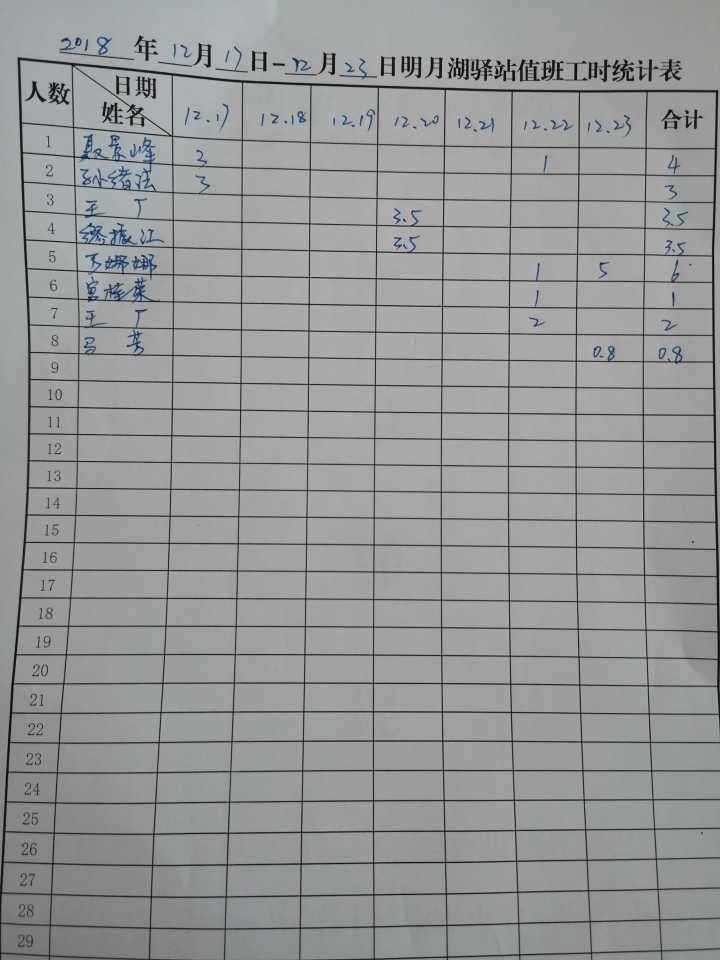 2018 年 12 月 17 日-12 月 23 日明月湖驿站值班工时统计表
人数 日期 姓名 12.17 12.18 12.19 12.20 12.21 12.22 12.23 合计
1 聂景峰 3 1 4
2 孙绪法 3 3
3 王 厂 3.5 3.5
4 振江 3.5 3.5
5 娜娜 1 5 6
6 宫桂莱 1 1
7 王 厂 2 2
8 马 芳 0.8 0.8
9
10
11
12
13
14
15
16
17
18
19
20
21
22
23
24
25
26
27
28
29